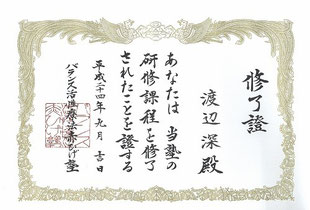 修了證
渡辺深殿
あなたは当塾の
研修課程を修了
されたことを證する
平成二十四年九月吉日
バランス活性療法赤ひげ塾